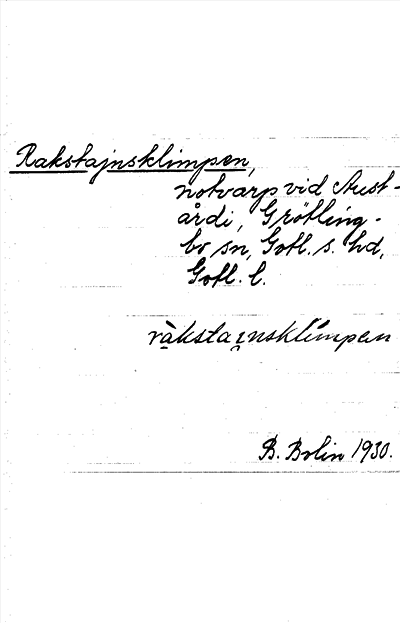 Rakstajnsklimpen,
notvarp vid Aust-
årdi, Grötling-
bo sn, Gotl. s. hd,
Gotl. l.
ràkstai̯nsklímpen
B. Bolin 1930.